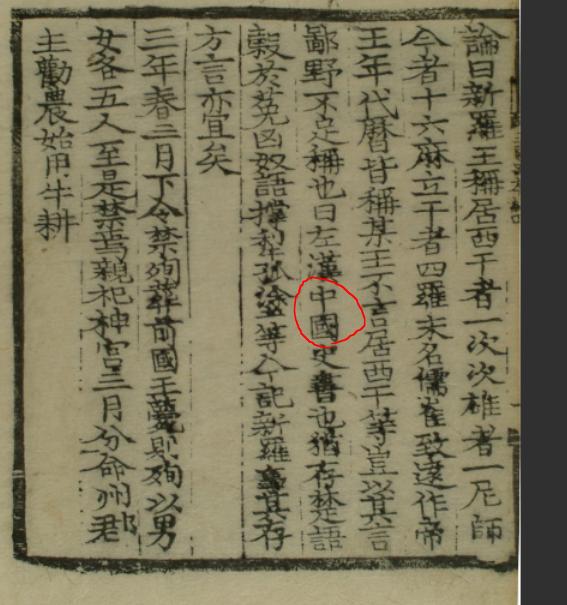 論曰新羅王稱居西干者一次次雄者一尼師
今者十六麻立干者四羅末名儒崔致遠作帝
王年代曆皆稱某王不言居西干等豈以其言
鄙野不足稱也曰左漢中國史書也猶存楚語
穀於菟匈奴語撑犁孤塗等今記新羅事其存
方言亦宜矣
三年春三月下令禁殉葬前國王薨則殉以男
女各五人至是禁焉親祀神宮三月分命州郡
主勸農始用牛耕